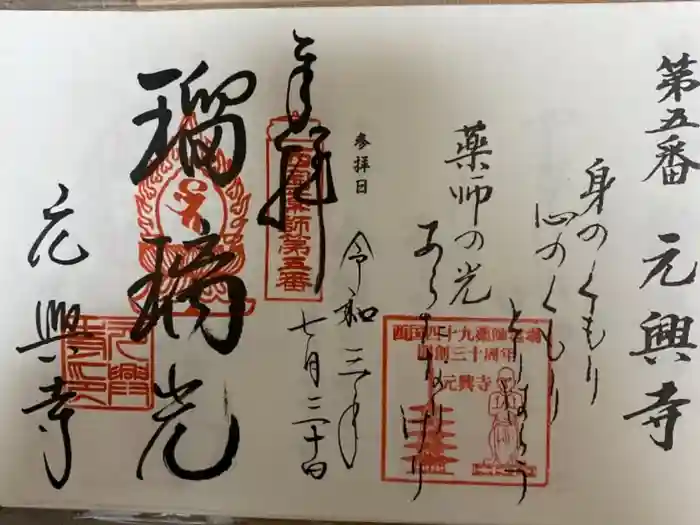 第五番 元興寺
身のくもり
心のくもり
とりはらう
薬師の光
あらたなりけり
西国四十九薬師霊場
開創三十周年
元興寺
参拝日
令和三年
七月二十四日
奉拝
西国薬師第五番
瑠璃光
元興寺